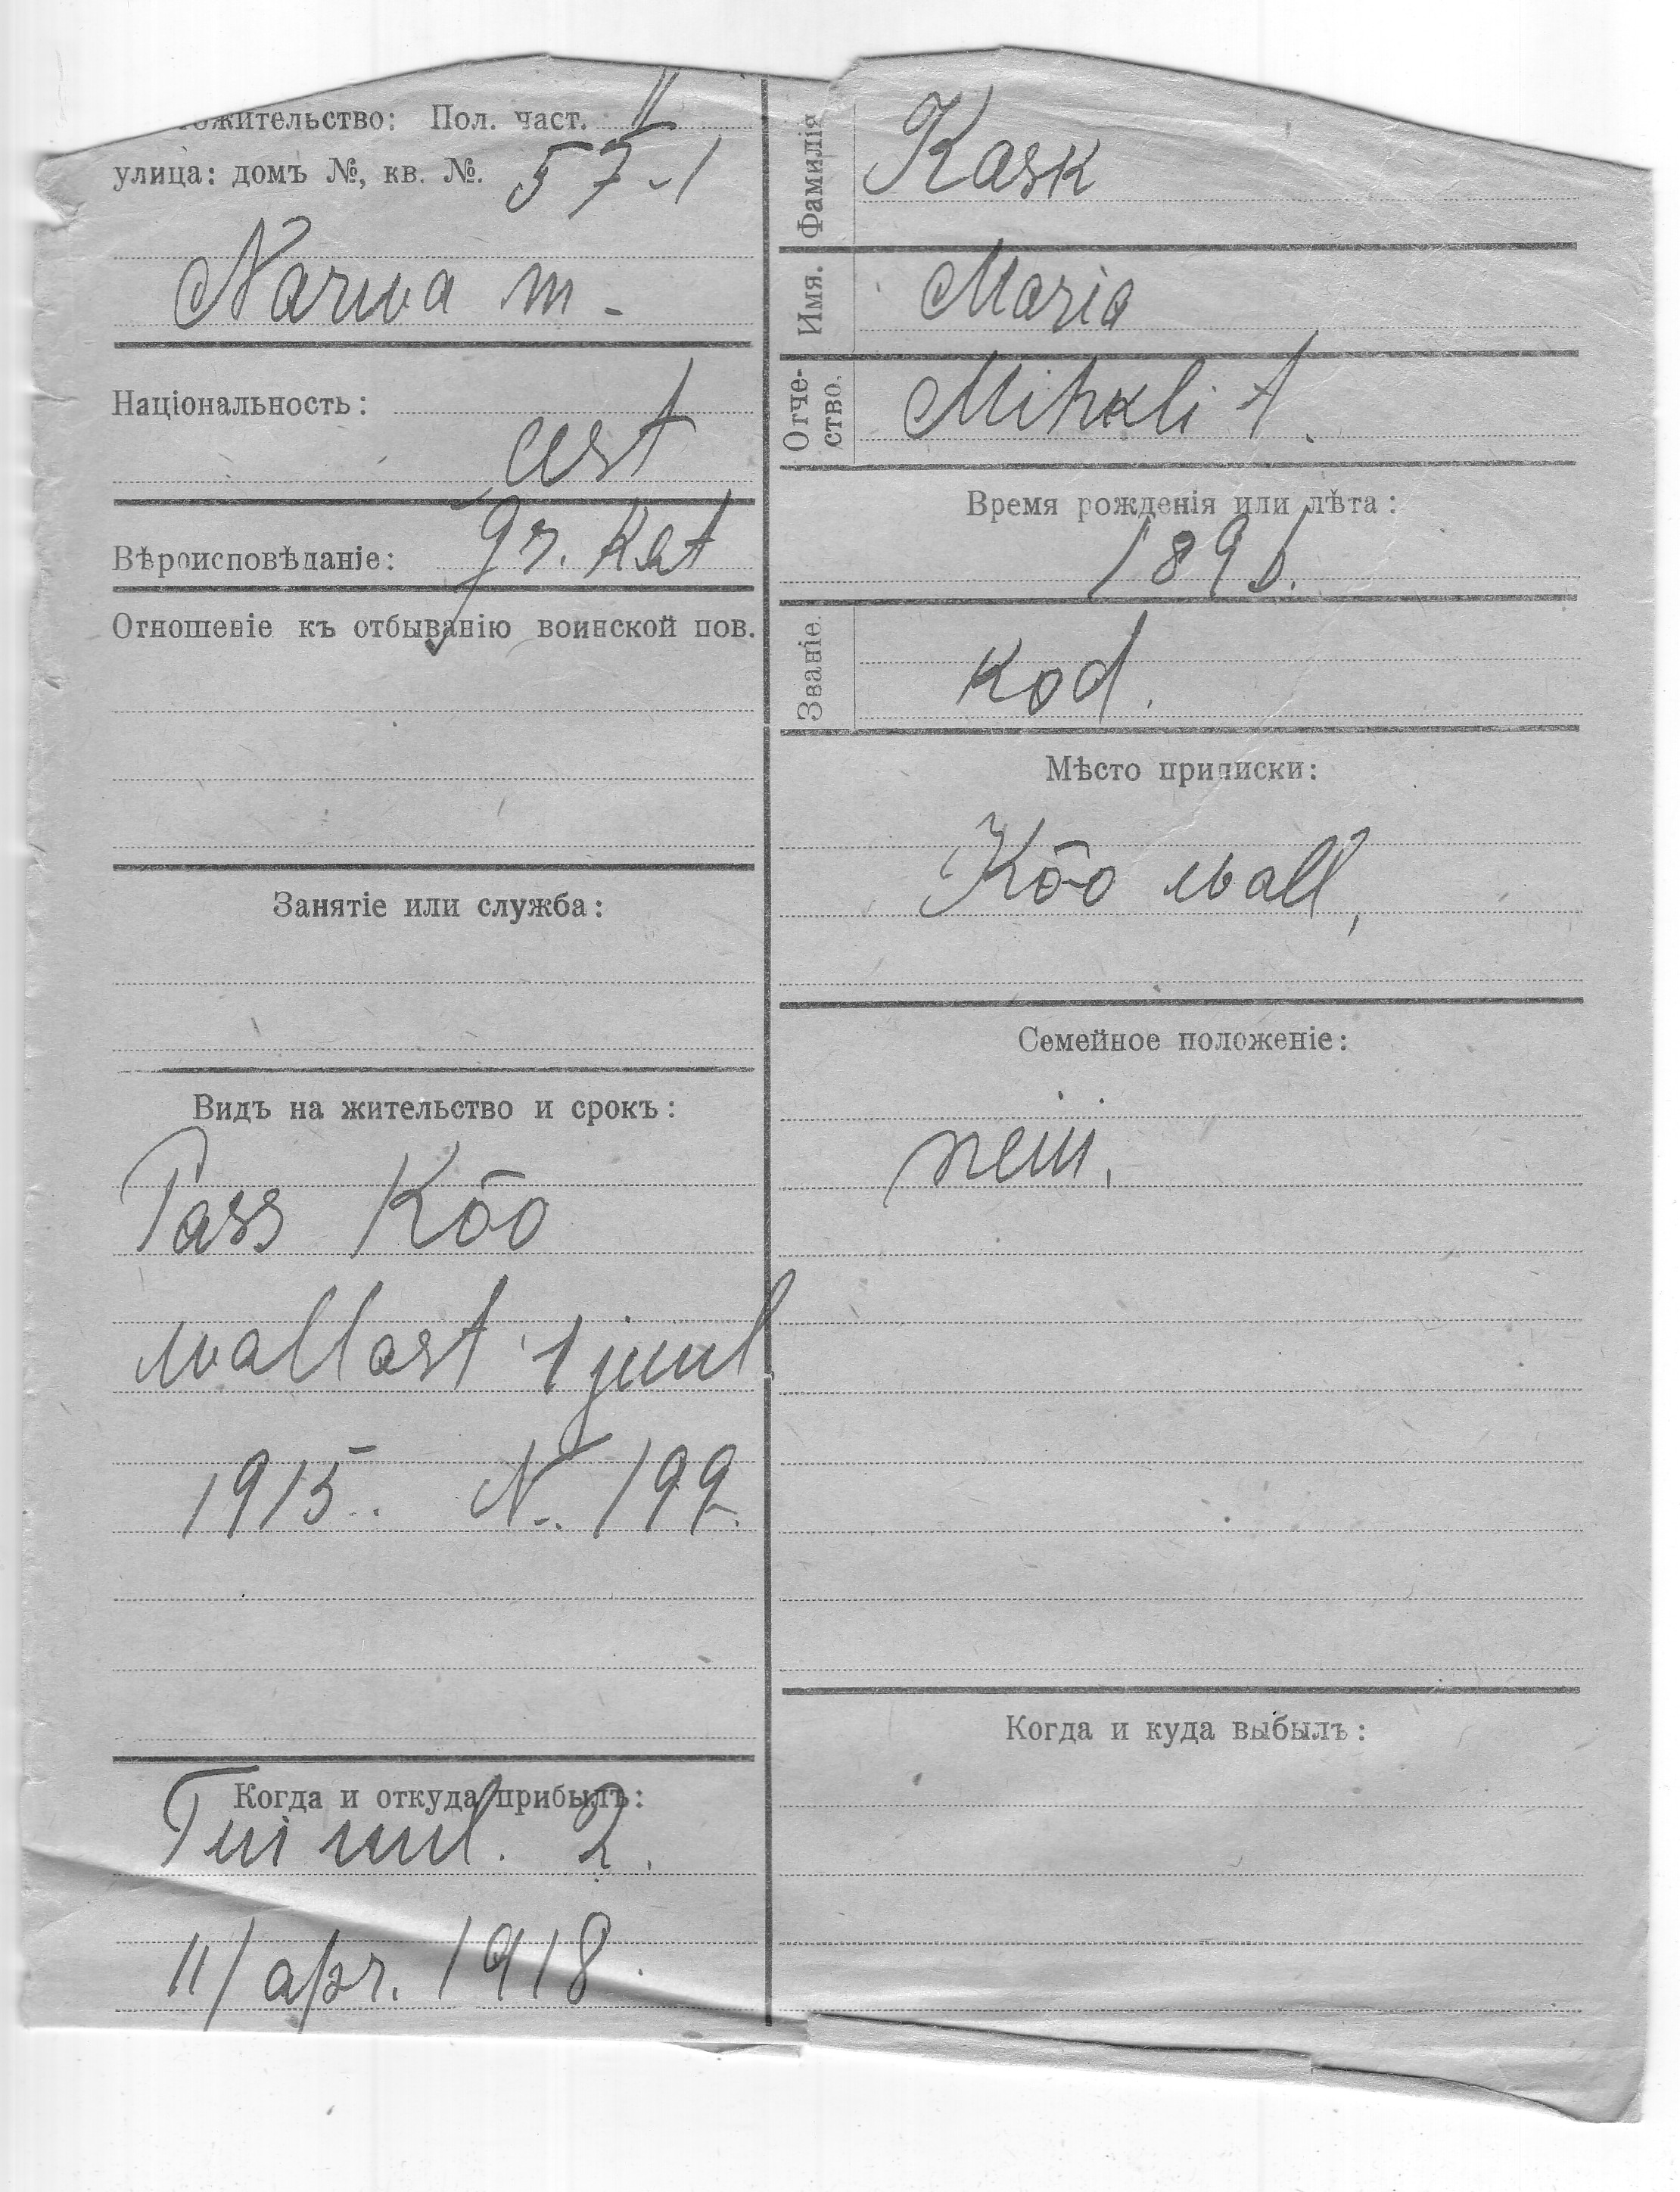 ожительство: Пол. част. II
улица: домъ №, кв. №. 57-1
Narwa m-
Національность:
eest
Вѣроисповѣданіе: gr. Kat
Отношеніе къ отбыванію воинской пов.
Занятіе или служба:
Видъ на жительство и срокъ:
Pass Kõo
wallast 1 juul
1915. N. 199.
Когда и откуда прибылъ:
2.
11/apr. 1918.
Фамилія Kask
Имя. Maria
Отче-
ство. Mihkli t.
Время рожденія или лѣта:
1896.
Званіе. kod.
Мѣсто приписки:
Kõo wall,
Семейное положеніе:
neiu.
Когда и куда выбылъ: